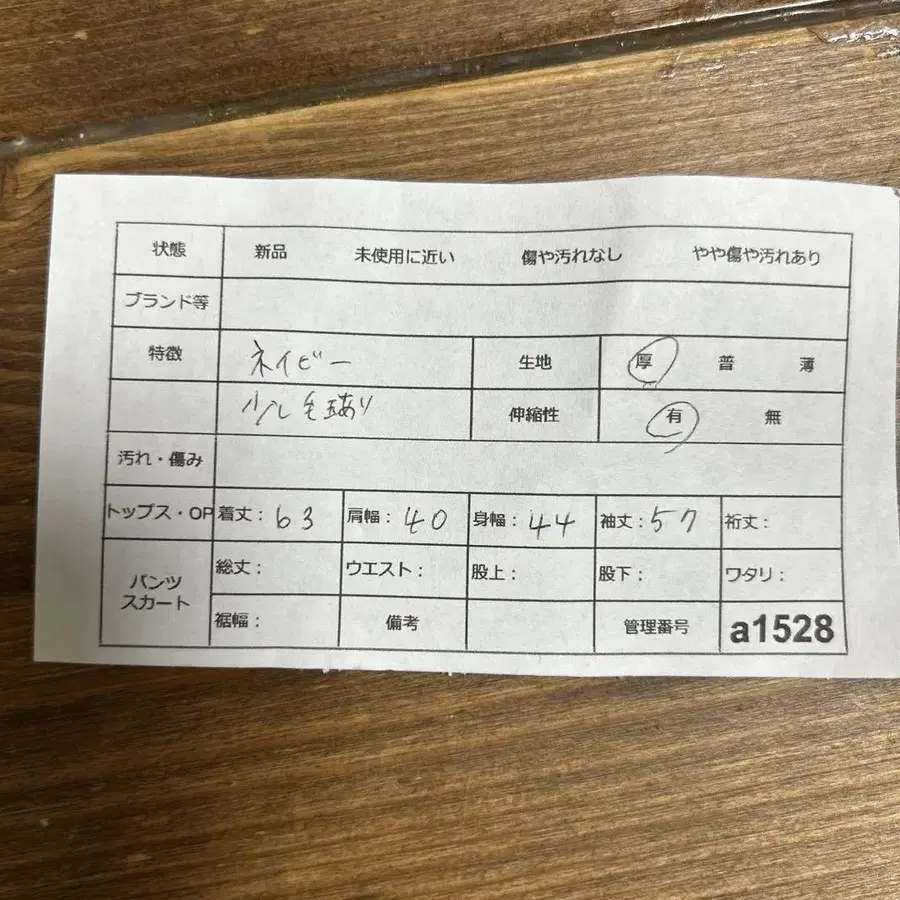 状態 新品 未使用に近い 傷や汚れなし やや傷や汚れあり
ブランド等
特徴 ネイビー 生地 厚 普 薄
少し毛玉あり 伸縮性 有 無
汚れ・傷み
トップス・OP 着丈: 63 肩幅: 40 身幅: 44 袖丈: 57 裄丈:
パンツ スカート 総丈: ウエスト: 股上: 股下: ワタリ:
裾幅: 備考 管理番号 a1528